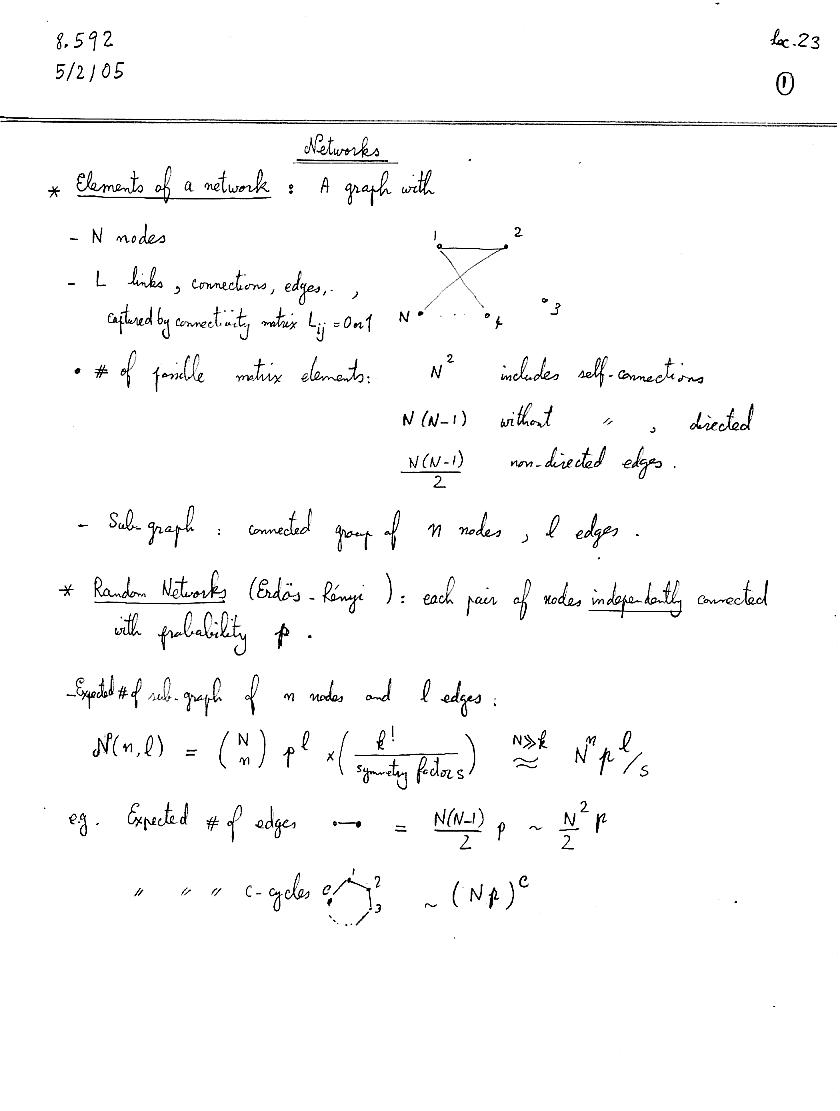 8.592
lec.23
5/2/05
①
Networks
* Elements of a network : A graph with
- N nodes
1 2
- L links, connections, edges,.. ,
captured by connectivity matrix Lij = 0 or 1
N 4 3
• # of possible matrix elements: N² includes self-connections
N(N-1) without " , directed
N(N-1)/2 non-directed edges.
- Sub-graph : connected group of n nodes, l edges.
* Random Networks (Erdös-Rényi): each pair of nodes independently connected
with probability p.
- Expected # of sub-graph of n nodes and l edges:
N(n,l) = (N n) p^l × (k! / symmetry factors) N≫k ≈ N^n p^l/s
e.g. Expected # of edges •—• = N(N-1)/2 p ~ N²/2 p
" " " c-cycles c 1 2 3 ~ (Np)^c